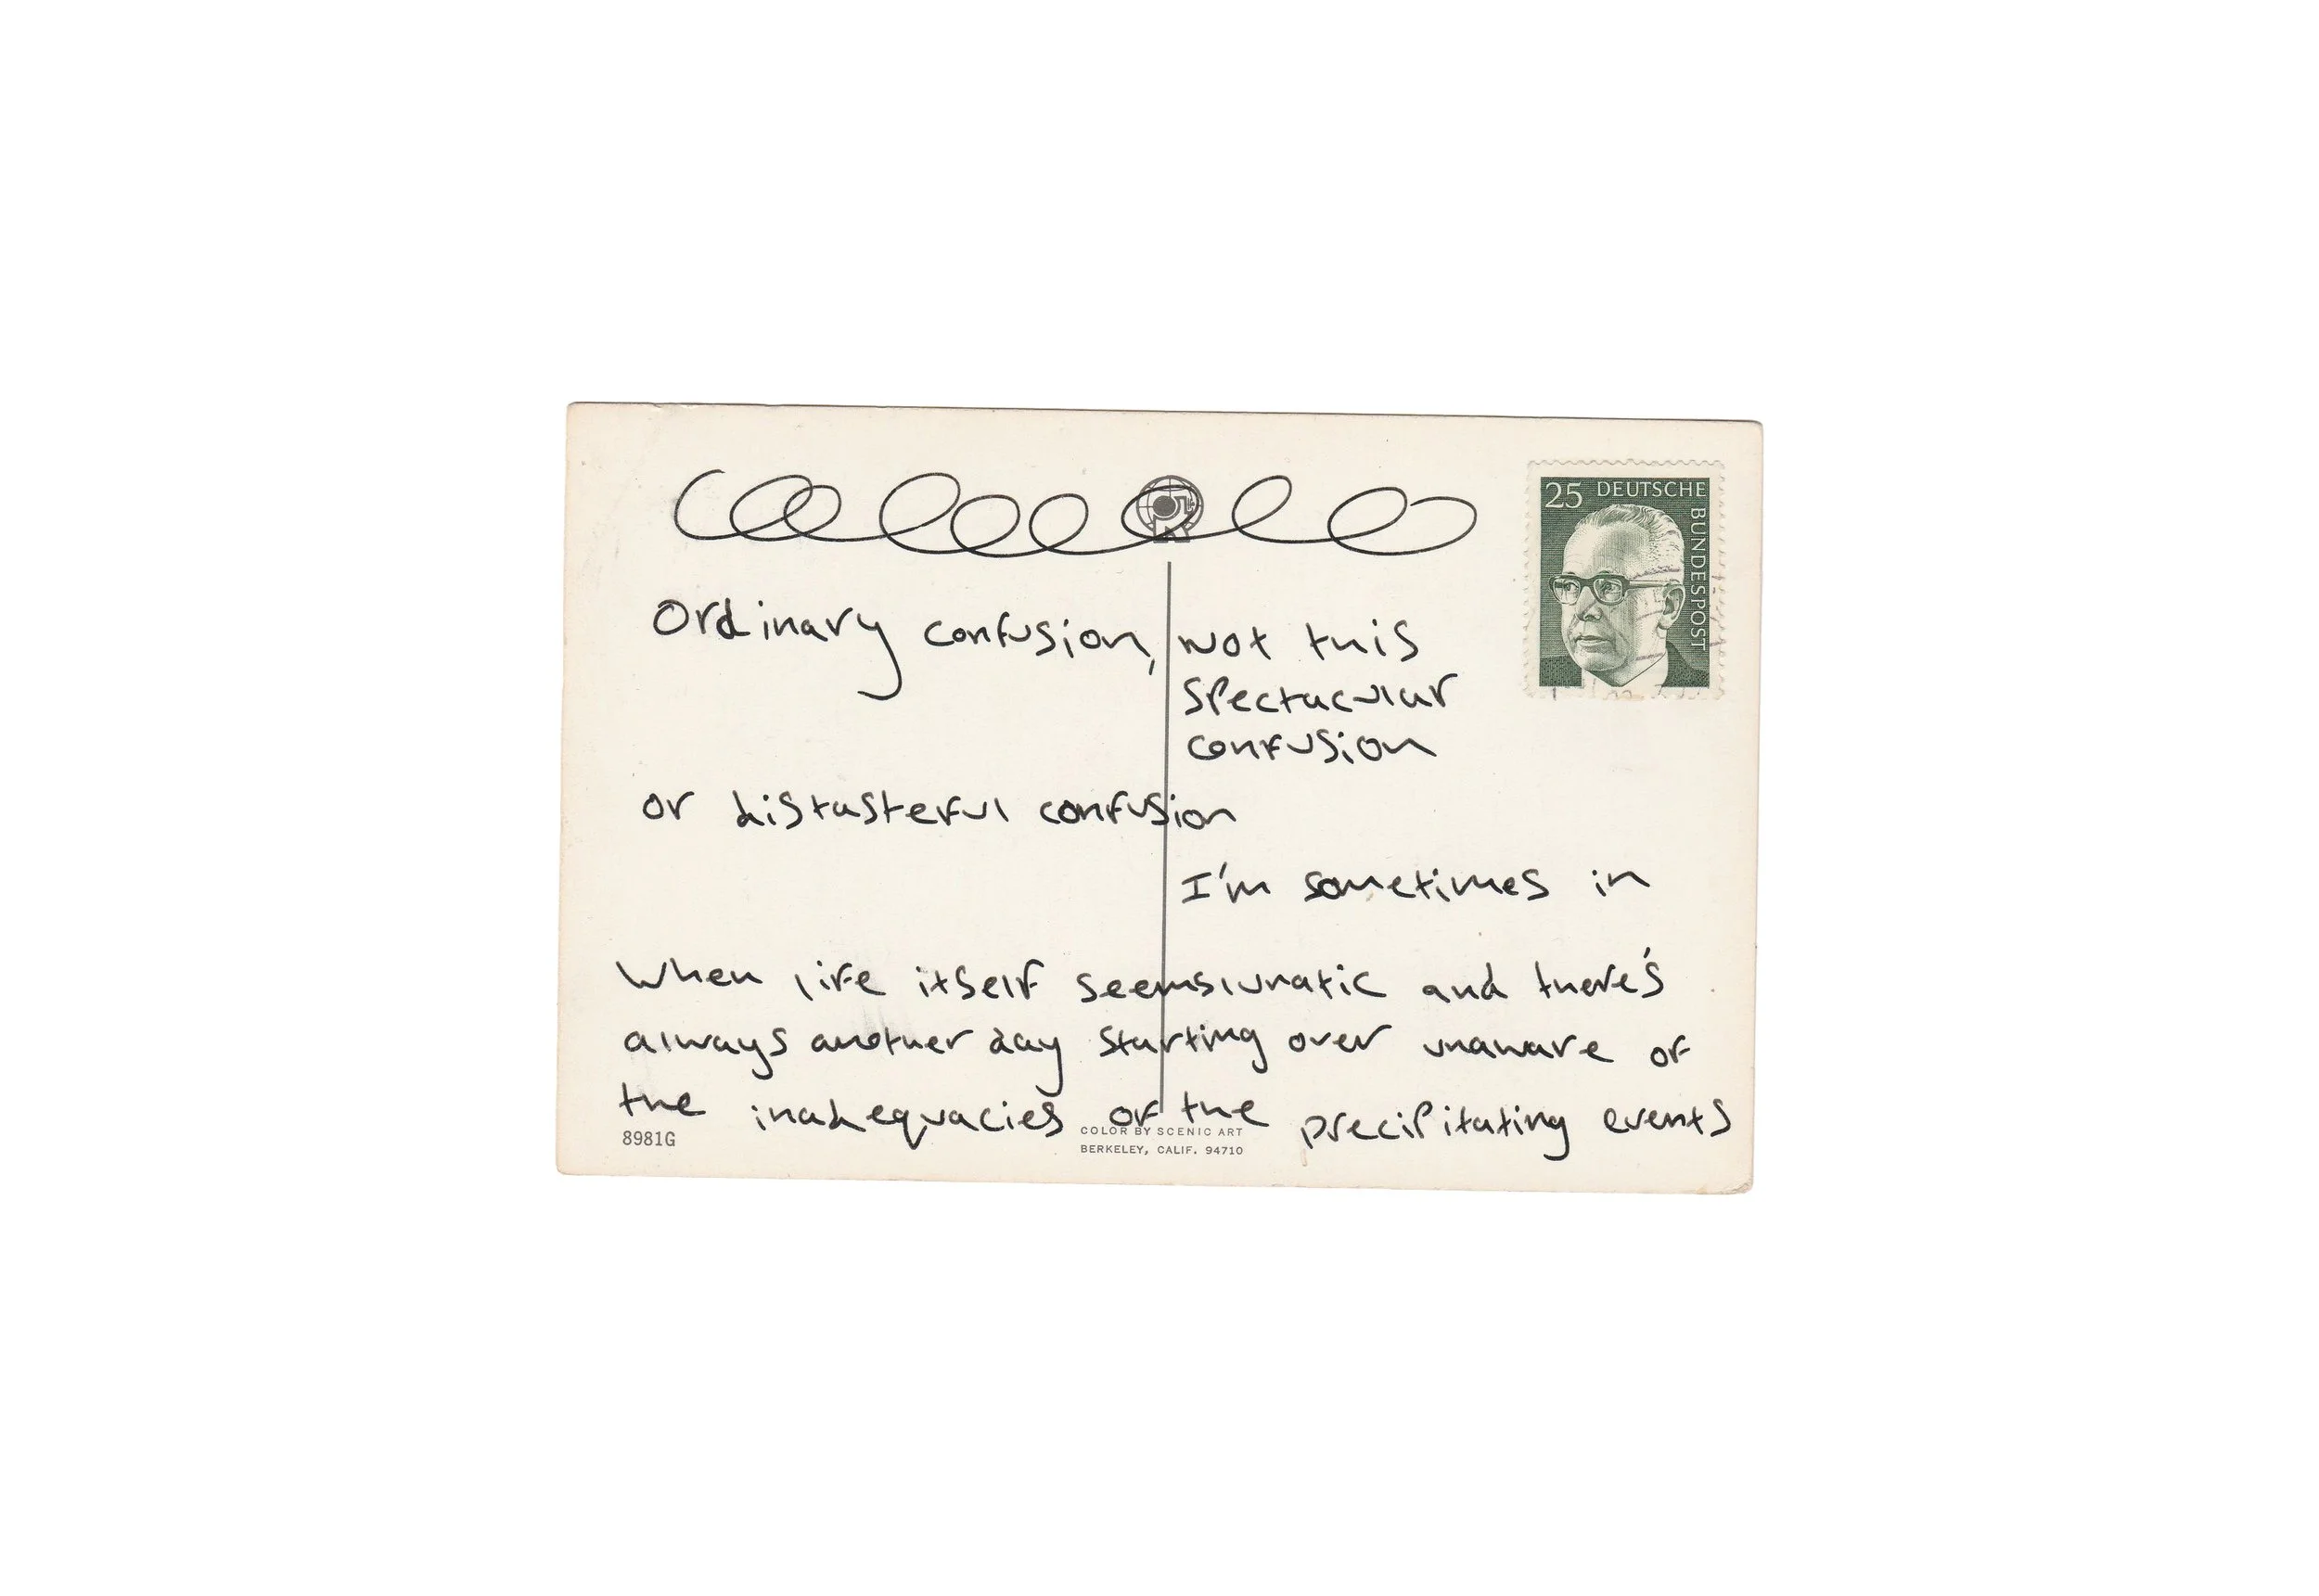 25 DEUTSCHE BUNDESPOST
Ordinary confusion, not this
spectacular
confusion
or distasterful confusion
I'm sometimes in
When life itself seems lunatic and there's
always another day starting over unaware of
the inadequacies of the precipitating events
8981G
COLOR BY SCENIC ART
BERKELEY, CALIF. 94710